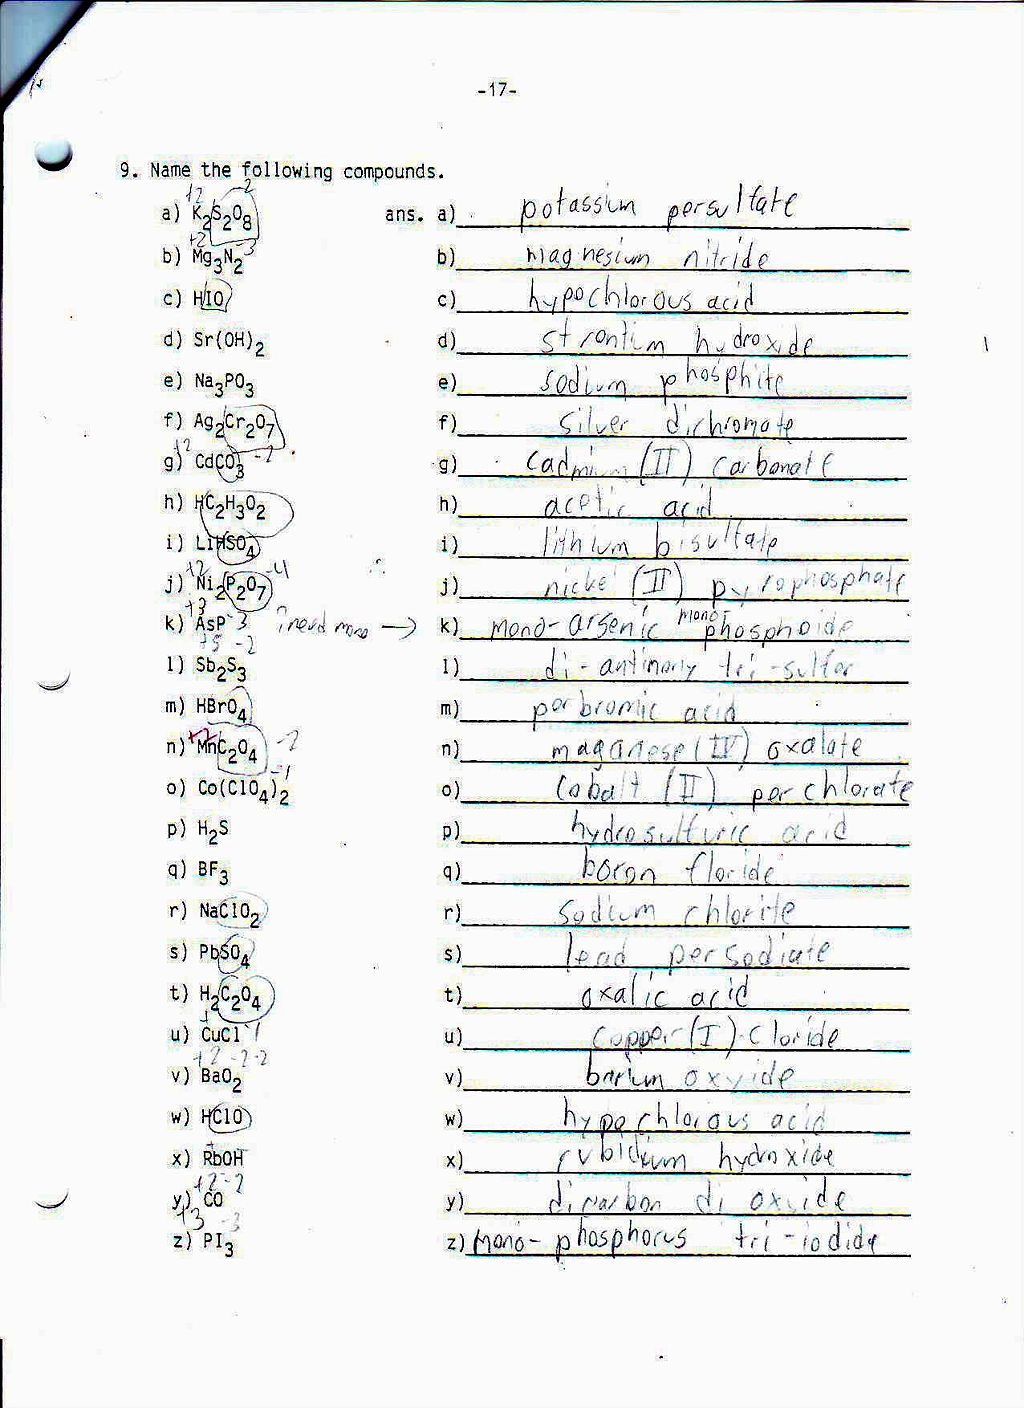 -17-
9. Name the following compounds.
+2 -2
a) K2S2O8 ans. a) potassium persulfate
+2 -3
b) Mg3N2 b) magnesium nitride
c) HIO c) hypochlorous acid
d) Sr(OH)2 d) strontim hydroxide
e) Na3PO3 e) sodium phosphite
f) Ag2Cr2O7 f) silver dichromate
+2 -2
g) CdCO3 g) Cadmium (II) carbonate
h) HC2H3O2 h) acetic acid
i) LiHSO4 i) lithium bisulfate
+2 -4
j) Ni2P2O7 j) nickel (II) pyrophosphate
+3 -3
k) AsP ?need mono → k) mono-arsenic mono-phosphoide
+5 -2
l) Sb2S3 l) di-antimony tri-sulfer
m) HBrO4 m) perbromic acid
+2 -2
n) MnC2O4 n) maganese (IV) oxalate
-1
o) Co(ClO4)2 o) Cobalt (II) perchlorate
p) H2S p) hydrosulfuric acid
q) BF3 q) boron floride
r) NaClO2 r) sodium chlorite
s) PbSO4 s) lead persodiate
t) H2C2O4 t) oxalic acid
+ -1
u) CuCl u) copper (I) cloride
+2 -2 -2
v) BaO2 v) barium oxyide
w) HClO w) hypochlorous acid
+ -
x) RbOH x) rubidium hydroxide
+2 -2
y) CO y) dicarbon di oxyide
+3 -3
z) PI3 z) Mono-phosphorus tri-iodide